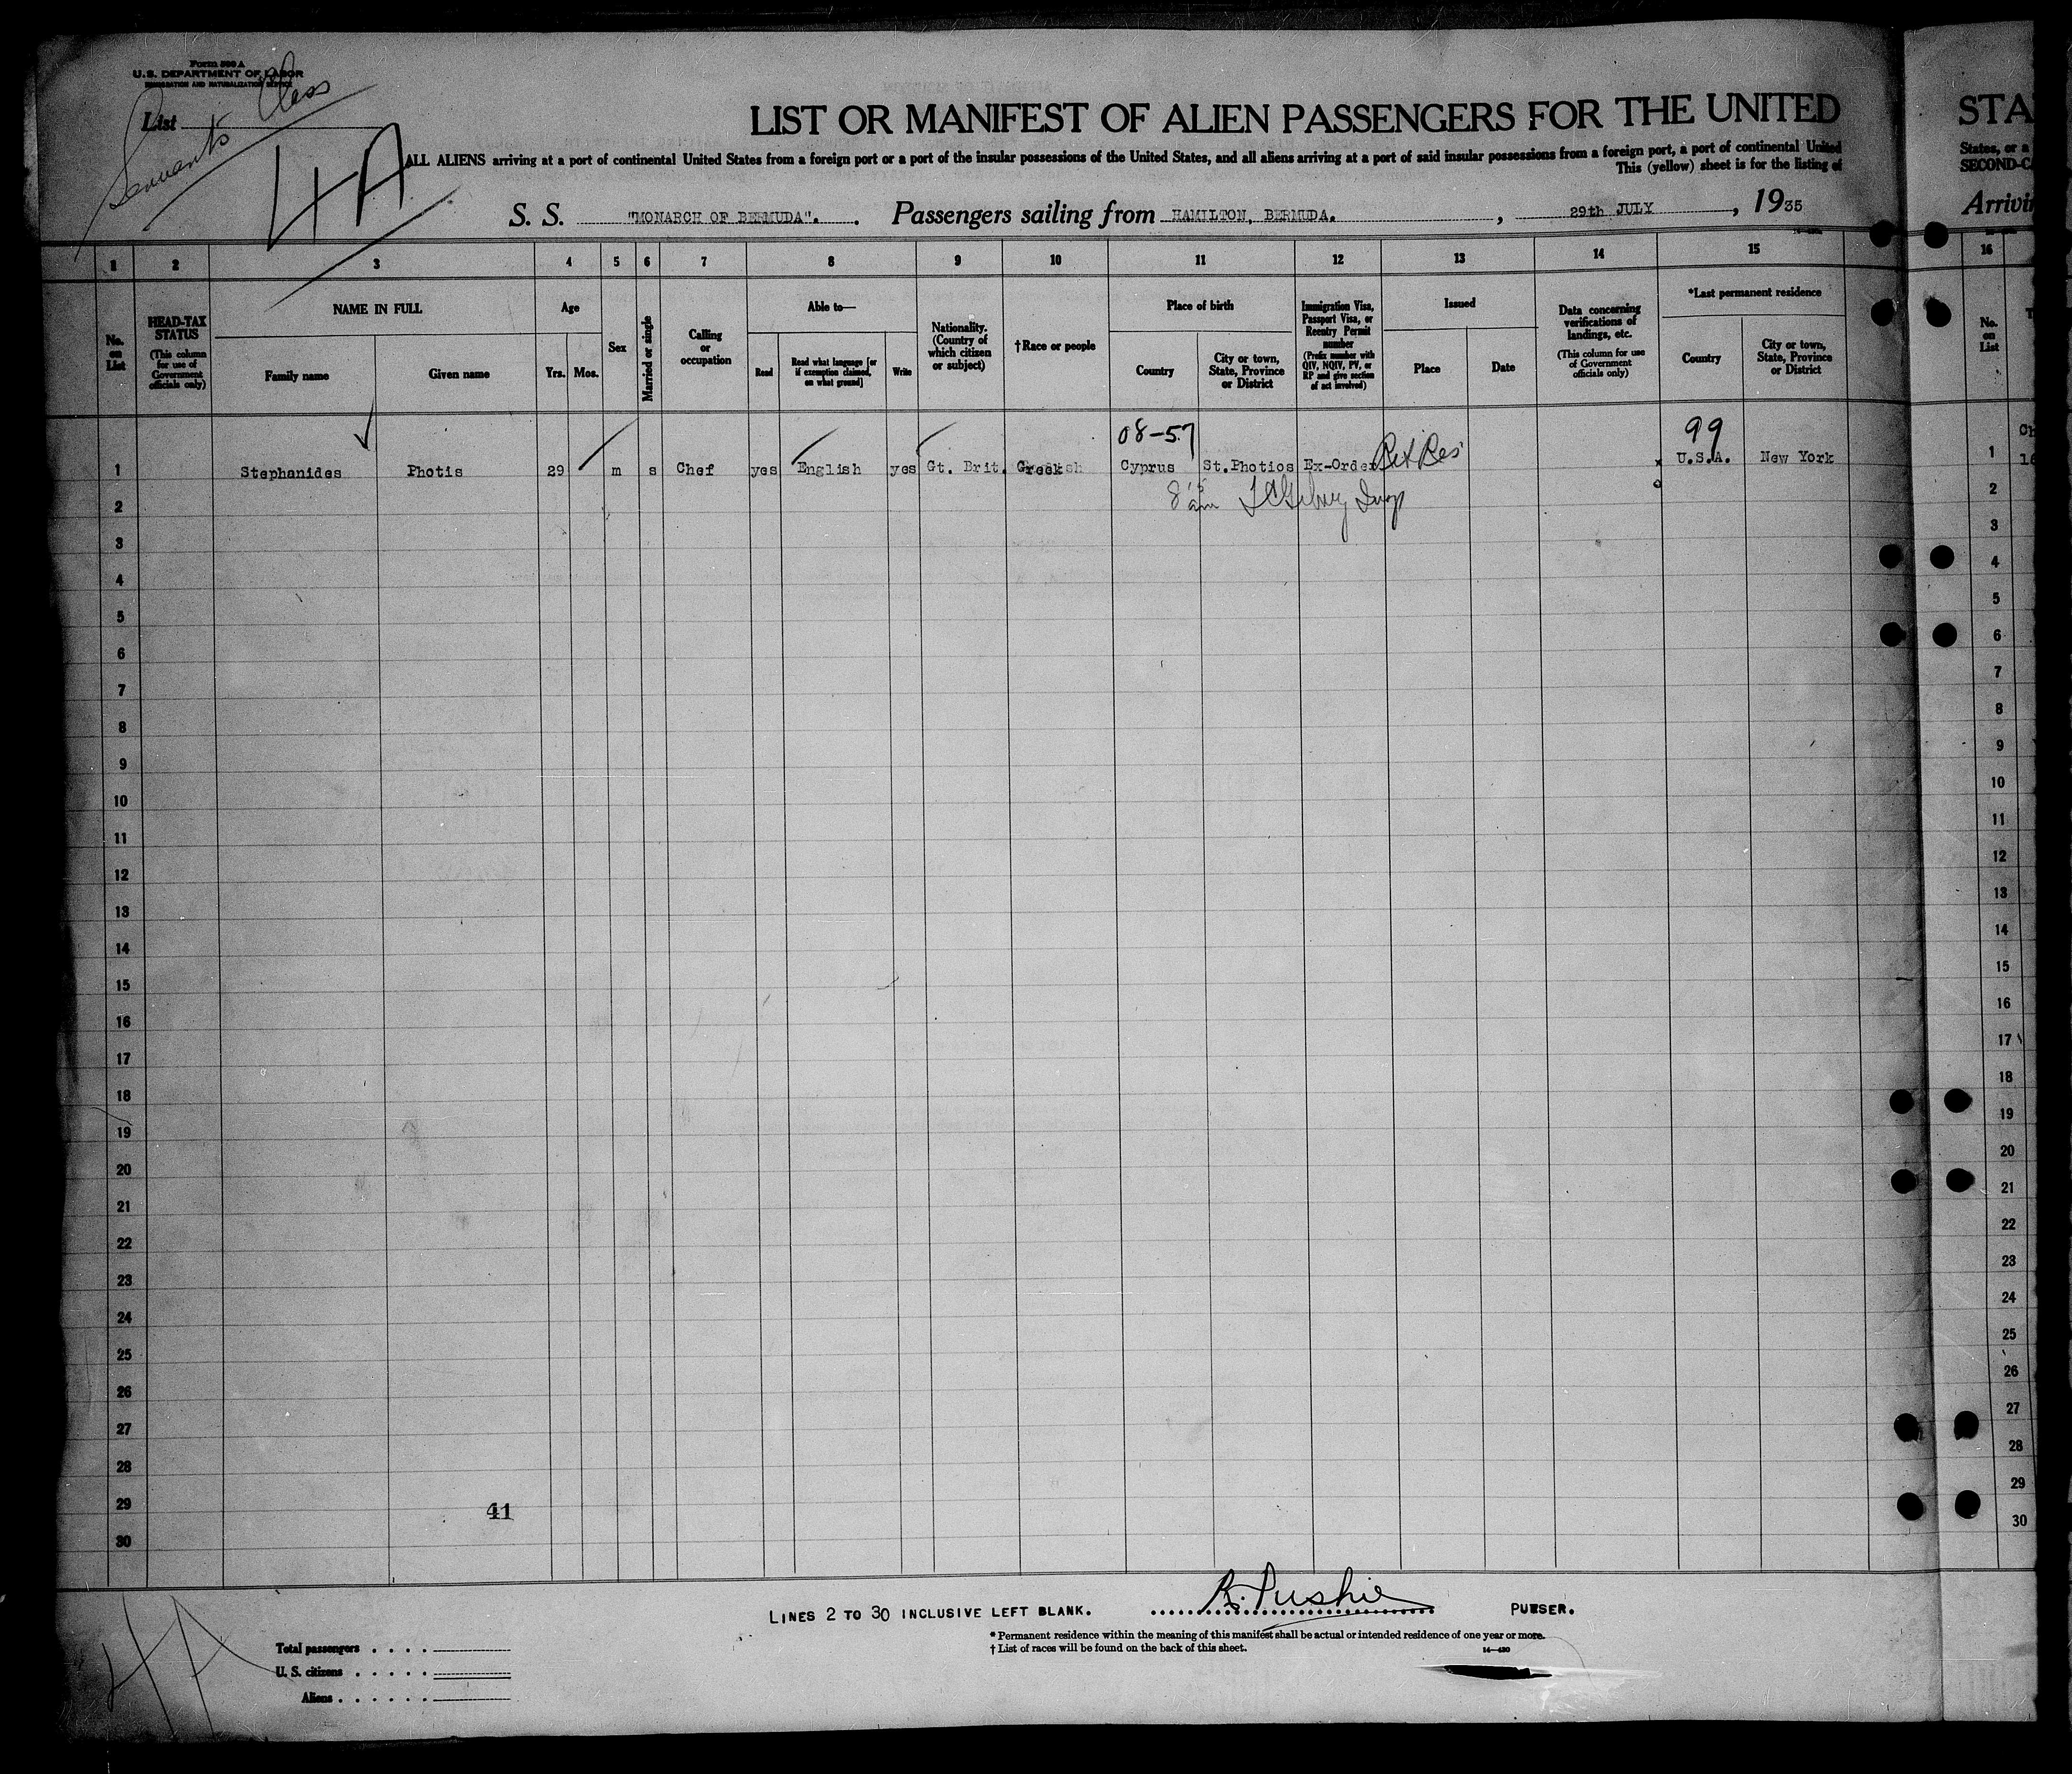 Form 500 A
U. S. DEPARTMENT OF LABOR
IMMIGRATION AND NATURALIZATION SERVICE
List
Servants Class
4A
LIST OR MANIFEST OF ALIEN PASSENGERS FOR THE UNITED
STA
ALL ALIENS arriving at a port of continental United States from a foreign port or a port of the insular possessions of the United States, and all aliens arriving at a port of said insular possessions from a foreign port, a port of continental United
States, or a
This (yellow) sheet is for the listing of
SECOND-C
S. S. "MONARCH OF BERMUDA". Passengers sailing from HAMILTON, BERMUDA. , 29th JULY , 1935
Arrivin
1 2 3 4 5 6 7 8 9 10 11 12 13 14 15 16
No. on List
HEAD-TAX STATUS
(This column for use of Government officials only)
NAME IN FULL
Family name
Given name
Age
Yrs. Mos.
Sex
Married or single
Calling or occupation
Able to—
Read
Read what language [or if exemption claimed, on what ground]
Write
Nationality. (Country of which citizen or subject)
†Race or people
Place of birth
Country
City or town, State, Province or District
Immigration Visa, Passport Visa, or Reentry Permit number
(Prefix number with QIV, NQIV, PV, or RP and give section of act involved)
Issued
Place
Date
Data concerning verifications of landings, etc.
(This column for use of Government officials only)
*Last permanent residence
Country
City or town, State, Province or District
No. on List
08-57
99
1 Stephanides Photis 29 m s Chef yes English yes Gt. Brit. Greek Cyprus St.Photios Ex-Order Ret Res x U.S.A. New York 1
2 2
3 3
4 4
5 5
6 6
7 7
8 8
9 9
10 10
11 11
12 12
13 13
14 14
15 15
16 16
17 17
18 18
19 19
20 20
21 21
22 22
23 23
24 24
25 25
26 26
27 27
28 28
29 41 29
30 30
LINES 2 TO 30 INCLUSIVE LEFT BLANK. R. Pushie PURSER.
* Permanent residence within the meaning of this manifest shall be actual or intended residence of one year or more.
† List of races will be found on the back of this sheet.
14—420
4A
Total passengers
U. S. citizens
Aliens